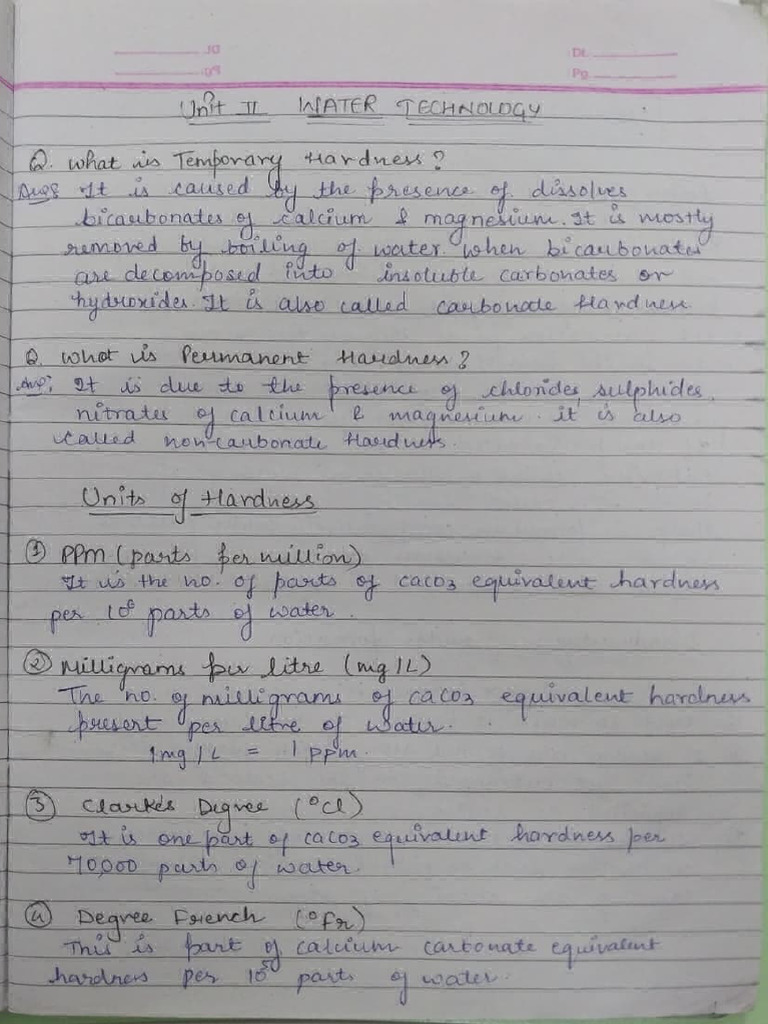 Dt.
Pg.
Unit II WATER TECHNOLOGY
Q. What is Temporary Hardness?
Ans It is caused by the presence of dissolves
bicarbonates of calcium & magnesium. It is mostly
removed by boiling of water. When bicarbonates
are decomposed into insoluble carbonates or
hydroxides. It is also called carbonate Hardness
Q. What is Permanent Hardness?
Ans: It is due to the presence of chlorides, sulphides,
nitrates of calcium & magnesium. it is also
called non-carbonate Hardness.
Units of Hardness
① PPm (parts per million)
It is the no. of parts of caco3 equivalent hardness
per 10⁶ parts of water.
② Milligrams per litre (mg/L)
The no. of milligrams of caco3 equivalent hardness
present per litre of water.
1mg/L = 1 ppm.
③ Clarke's Degree (°Cl)
It is one part of caco3 equivalent hardness per
70,000 parts of water.
④ Degree French (°Fr)
This is part of calcium carbonate equivalent
hardness per 10⁵ parts of water.